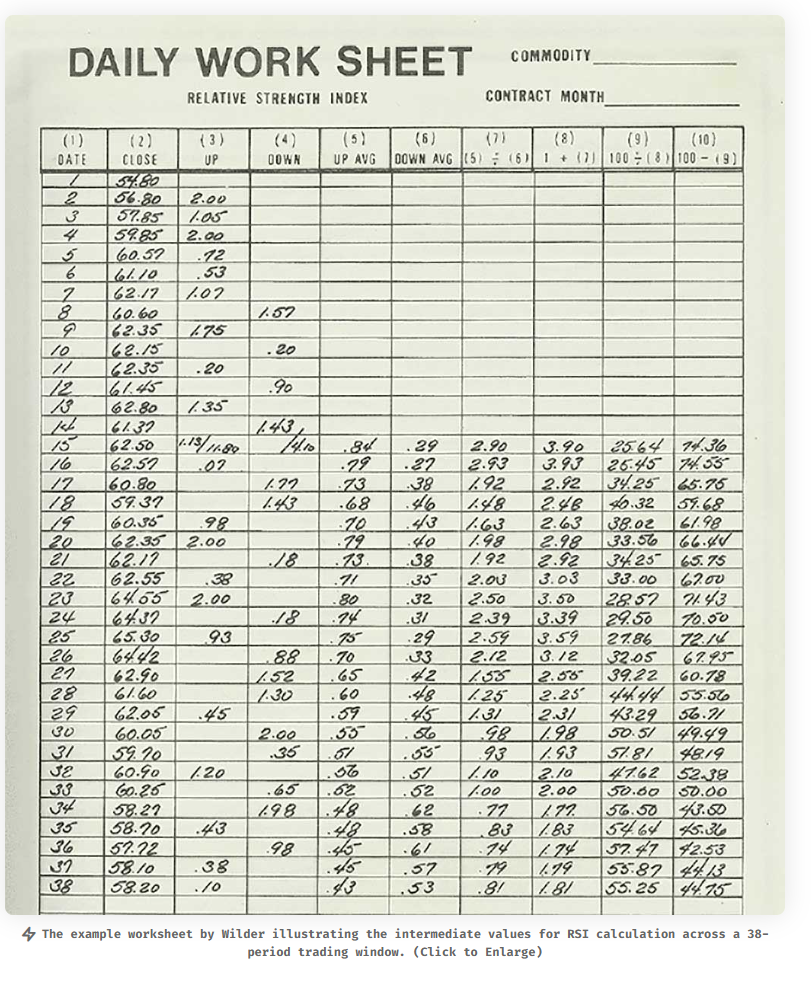 DAILY WORK SHEET COMMODITY
RELATIVE STRENGTH INDEX CONTRACT MONTH
(1) (2) (3) (4) (5) (6) (7) (8) (9) (10)
DATE CLOSE UP DOWN UP AVG DOWN AVG (5) ÷ (6) 1 + (7) 100 ÷ (8) 100 - (9)
1 54.80
2 56.80 2.00
3 57.85 1.05
4 59.85 2.00
5 60.57 .72
6 61.10 .53
7 62.17 1.07
8 60.60 1.57
9 62.35 1.75
10 62.15 .20
11 62.35 .20
12 61.45 .90
13 62.80 1.35
14 61.37 1.43
15 62.50 1.13/11.80 /4.10 .84 .29 2.90 3.90 25.64 74.36
16 62.57 .07 .79 .27 2.93 3.93 25.45 74.55
17 60.80 1.77 .73 .38 1.92 2.92 34.25 65.75
18 59.37 1.43 .68 .46 1.48 2.48 40.32 59.68
19 60.35 .98 .70 .43 1.63 2.63 38.02 61.98
20 62.35 2.00 .79 .40 1.98 2.98 33.56 66.44
21 62.17 .18 .73 .38 1.92 2.92 34.25 65.75
22 62.55 .38 .71 .35 2.03 3.03 33.00 67.00
23 64.55 2.00 .80 .32 2.50 3.50 28.57 71.43
24 64.37 .18 .74 .31 2.39 3.39 29.50 70.50
25 65.30 .93 .75 .29 2.59 3.59 27.86 72.14
26 64.42 .88 .70 .33 2.12 3.12 32.05 67.95
27 62.90 1.52 .65 .42 1.55 2.55 39.22 60.78
28 61.60 1.30 .60 .48 1.25 2.25 44.44 55.56
29 62.05 .45 .59 .45 1.31 2.31 43.29 56.71
30 60.05 2.00 .55 .56 .98 1.98 50.51 49.49
31 59.70 .35 .51 .55 .93 1.93 51.81 48.19
32 60.90 1.20 .56 .51 1.10 2.10 47.62 52.38
33 60.25 .65 .52 .52 1.00 2.00 50.00 50.00
34 58.27 1.98 .48 .62 .77 1.77 56.50 43.50
35 58.70 .43 .48 .58 .83 1.83 54.64 45.36
36 57.72 .98 .45 .61 .74 1.74 57.47 42.53
37 58.10 .38 .45 .57 .79 1.79 55.87 44.13
38 58.20 .10 .43 .53 .81 1.81 55.25 44.75
The example worksheet by Wilder illustrating the intermediate values for RSI calculation across a 38-
period trading window. (Click to Enlarge)